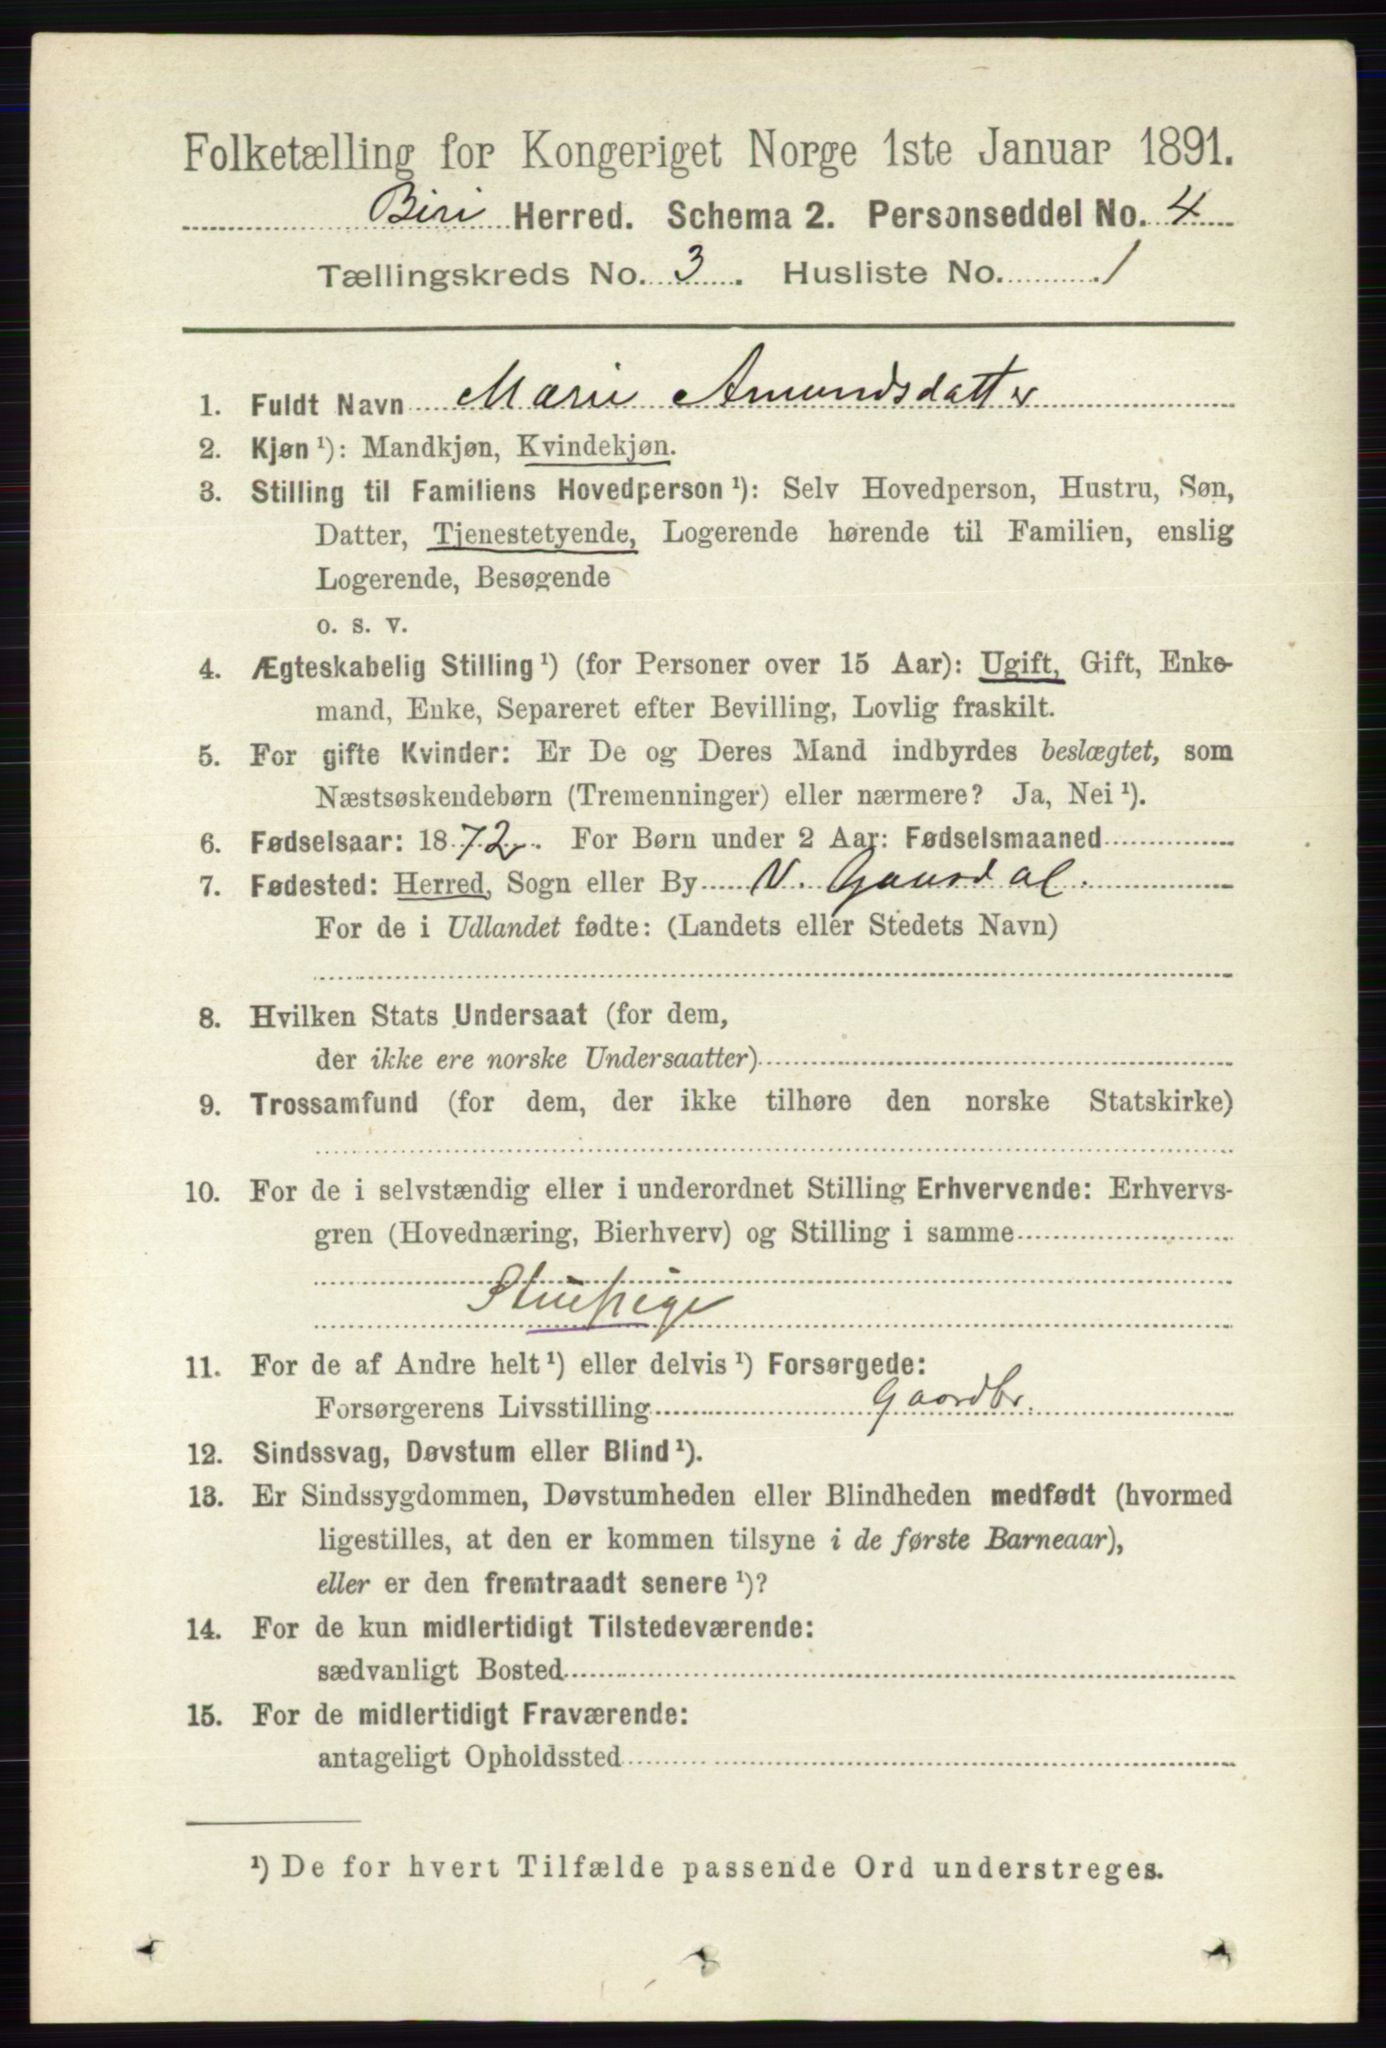 Folketælling for Kongeriget Norge 1ste Januar 1891.
Biri Herred. Schema 2. Personseddel No. 4
Tællingskreds No. 3. Husliste No. 1
1. Fuldt Navn Marie Amundsdatter
2. Kjøn ¹): Mandkjøn, Kvindekjøn.
3. Stilling til Familiens Hovedperson ¹): Selv Hovedperson, Hustru, Søn,
Datter, Tjenestetyende, Logerende hørende til Familien, enslig
Logerende, Besøgende
o. s. v.
4. Ægteskabelig Stilling ¹) (for Personer over 15 Aar): Ugift, Gift, Enke-
mand, Enke, Separeret efter Bevilling, Lovlig fraskilt.
5. For gifte Kvinder: Er De og Deres Mand indbyrdes beslægtet, som
Næstsøskendebørn (Tremenninger) eller nærmere? Ja, Nei ¹).
6. Fødselsaar: 1872. For Børn under 2 Aar: Fødselsmaaned
7. Fødested: Herred, Sogn eller By V. Gausdal.
For de i Udlandet fødte: (Landets eller Stedets Navn)
8. Hvilken Stats Undersaat (for dem,
der ikke ere norske Undersaatter)
9. Trossamfund (for dem, der ikke tilhøre den norske Statskirke)
10. For de i selvstændig eller i underordnet Stilling Erhvervende: Erhvervs-
gren (Hovednæring, Bierhverv) og Stilling i samme
Stuepige
11. For de af Andre helt ¹) eller delvis ¹) Forsørgede:
Forsørgerens Livsstilling Gaardbr.
12. Sindssvag, Døvstum eller Blind ¹).
13. Er Sindssygdommen, Døvstumheden eller Blindheden medfødt (hvormed
ligestilles, at den er kommen tilsyne i de første Barneaar),
eller er den fremtraadt senere ¹)?
14. For de kun midlertidigt Tilstedeværende:
sædvanligt Bosted
15. For de midlertidigt Fraværende:
antageligt Opholdssted
¹) De for hvert Tilfælde passende Ord understreges.